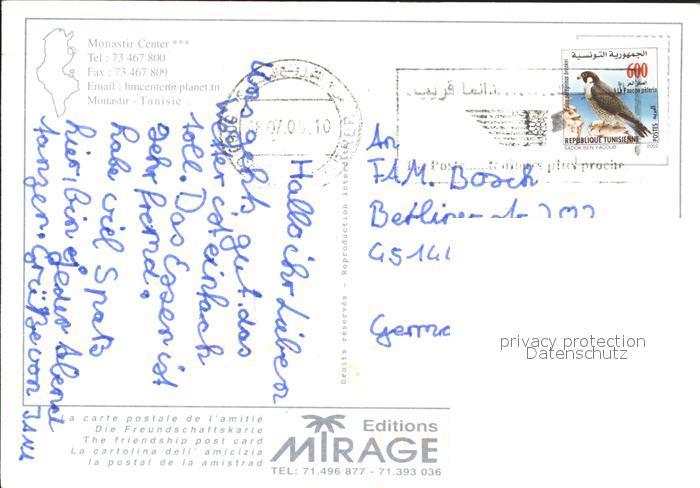 Monastir Center ***
Tel : 73 467 800
Fax : 73 467 809
Email : hmcenter@planet.tn
Monastir - Tunisie
Hallo ihr Lieben
uns geht's gut. das
Wetter ist einfach
toll. Das Essen ist
sehr fremd.
habe viel Spaß
hier! bin jeden Abend
tanzen. Grüße von
Droits réservés - Reproduction interdite
07.05.10
الجمهورية التونسية
600
Faucon pèlerin
البريد
POSTES
REPUBLIQUE TUNISIENNE
2002
دائما قريب
plus proche
An
FAM. Bosch
Berliner
4514
Germa
privacy protection
Datenschutz
La carte postale de l'amitié
Die Freundschaftskarte
The friendship post card
La cartolina dell' amicizia
la postal de la amistrad
Editions
MIRAGE
TEL: 71.496 877 - 71.393 036